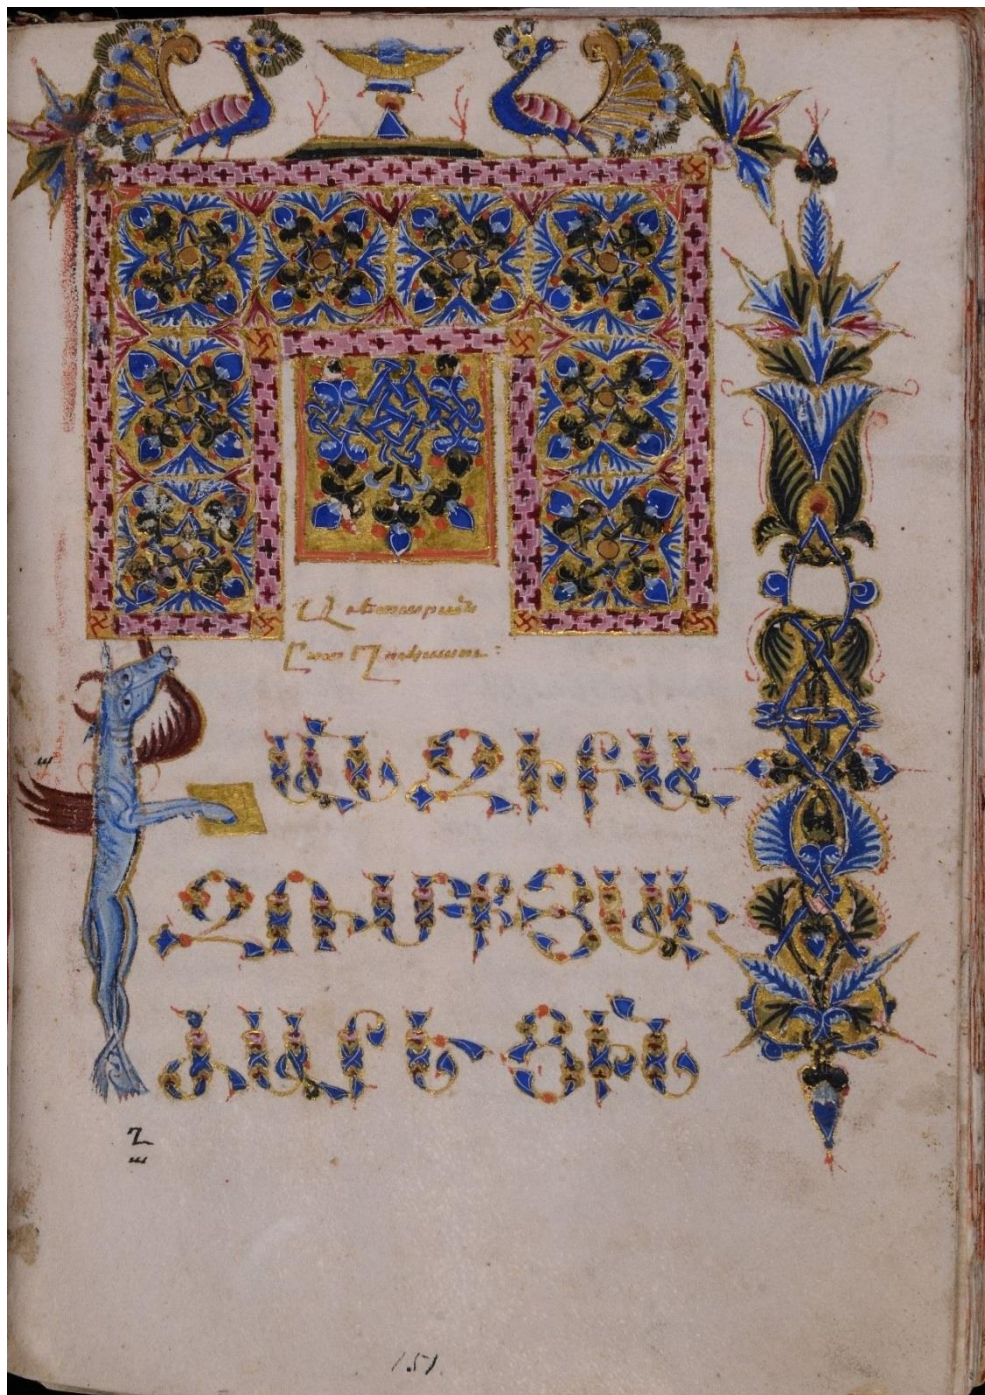 Աւետարան
Ըստ Ղուկասու։
ա
ՔԱՆԶԻ ԲԱ
ԶՈՒՄՔ ՅԱՒ
ԺԱՐԵՑԻՆ
Ղ
ա
151